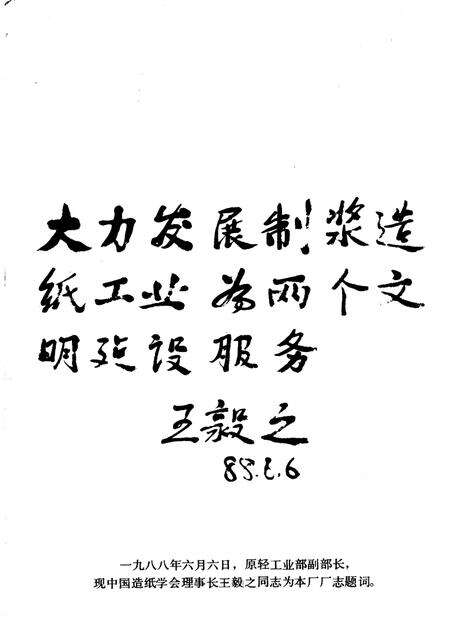 大力发展制浆造
纸工业为两个文
明建设服务
王毅之
88.6.6
一九八八年六月六日，原轻工业部副部长，
现中国造纸学会理事长王毅之同志为本厂厂志题词。